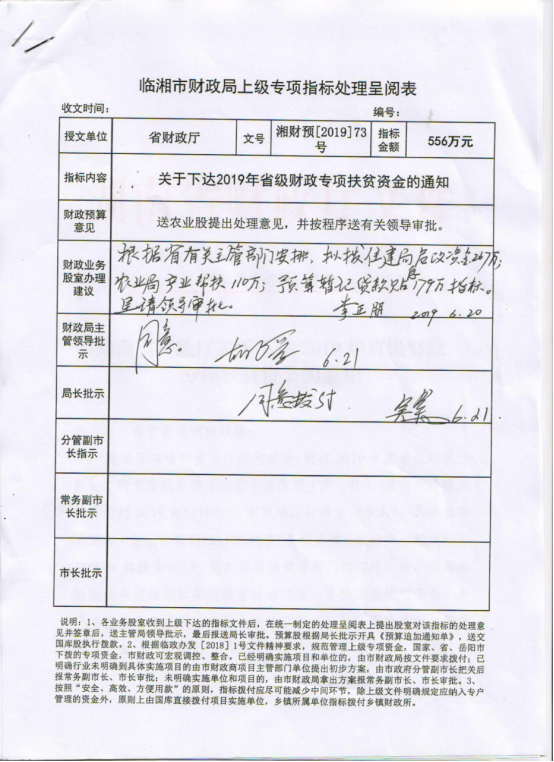 临湘市财政局上级专项指标处理呈阅表
收文时间：
编号：
授文单位
省财政厅
文号
湘财预[2019]73
号
指标
金额
556万元
指标内容
关于下达2019年省级财政专项扶贫资金的通知
财政预算
意见
送农业股提出处理意见，并按程序送有关领导审批。
财政业务
股室办理
建议
根据省有关主管部门安排，拟拨住建局危改资金267万；
农业局产业帮扶110万；预算暂记贷款贴息179万指标。
呈请领导审批。
李正朋 2019 6.20
财政局主
管领导批
示
同意。
6.21
局长批示
同意拨付.
6.21.
分管副市
长指示
常务副市
长批示
市长批示
说明：1、各业务股室收到上级下达的指标文件后，在统一制定的处理呈阅表上提出股室对该指标的处理意
见并签章后，送主管局领导批示，最后报送局长审批。预算股根据局长批示开具《预算追加通知单》，送交
国库股执行拨款。2、根据临政办发［2018］1号文件精神要求，规范管理上级专项资金，国家、省、岳阳市
下拨的专项资金，市财政可宏观调控、整合。已经明确实施项目和单位的，由市财政局按文件要求拨付；已
明确行业未明确到具体实施项目的由市财政商项目主管部门单位提出初步方案，由市政府分管副市长把关后
报常务副市长、市长审批；未明确实施单位和项目的，由市财政局拿出方案报常务副市长、市长审批。3、
按照“安全、高效、方便用款”的原则，指标拨付应尽可能减少中间环节，除上级文件明确规定应纳入专户
管理的资金外，原则上由国库直接拨付项目实施单位，乡镇所属单位指标拨付乡镇财政所。